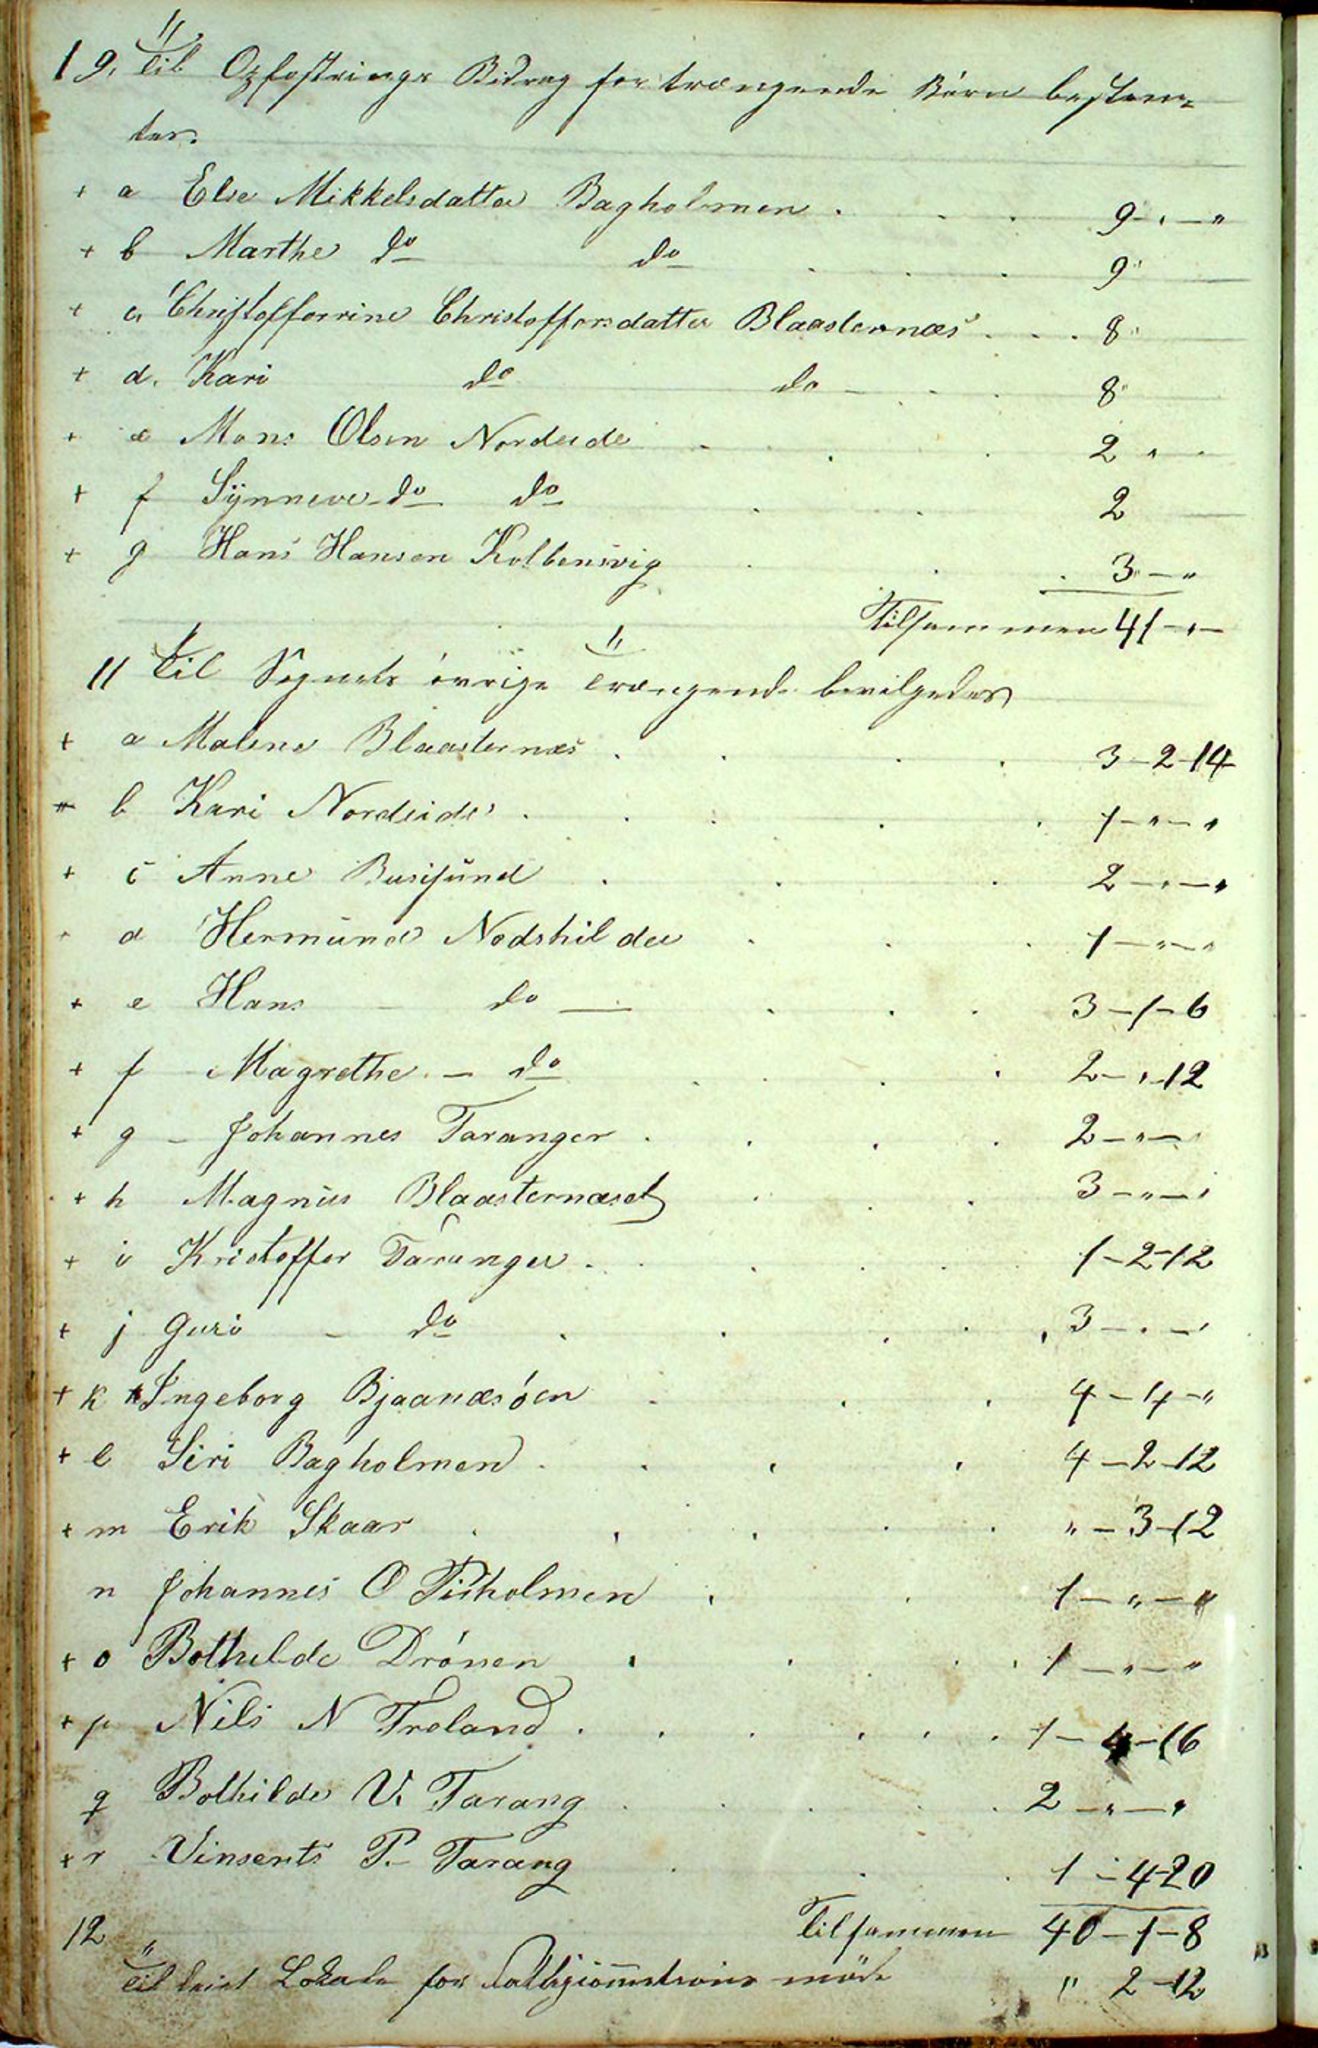 19. Til Opfostrings Bidrag for trængende Børn bestem-
tes.
+ a Else Mikkelsdatter Bagholmen . . . 9 - " - "
+ b Marthe do do . . . 9 "
+ c. Christofferine Christoffersdatter Blaasternæs . . . 8 "
+ d. Kari do do - . . . 8 "
+ e Mons Olsen Nordeide . . . 2 " "
+ f Synneve - do do . . 2
+ g Hans Hansen Kolbensvig . . . 3 - "
Tilsammen 41 - " -
11 Til Sognets øvrige Trængende bevilgedes
+ a Malene Blaasternæs . . . . 3 - 2 - 14
+ b Kari Nordeide . . . . . 1 - " - "
+ c Anne Busesund . . . 2 - " - "
d Hermund Nodshildei . . . 1 - " - "
+ e Hans - do - . . . 3 - 1 - 6
+ f Magrethe - do . . . 2 - " - 12
+ g - Johannes Taranger . . . . 2 - " - "
+ h Magnus Blaasternæset . . . 3 - " - "
+ i Kristoffer Taranger . . . . . 1 - 2 - 12
+ j Guri - do . . . . . 3 - " - "
+ k Ingeborg Bjaanæsøen . . . 4 - 4 - "
+ l Siri Bagholmen . . . . 4 - 2 - 12
+ m Erik Skaar . . . . . " - 3 - 12
n Johannes O Pirholmen . . 1 - " - "
+ o Bothilde Drønen . . . . 1 - " - "
+ p Nils N Troland . . . . . . 1 - 4 - 16
q Bothilde V. Tarang . . . . . 2 - " - "
+ r Vinsents P. - Tarang . . . 1 - 4 - 20
Tilsammen 40 - 1 - 8
12
Til leiet Lokale for møde " 2 - 12